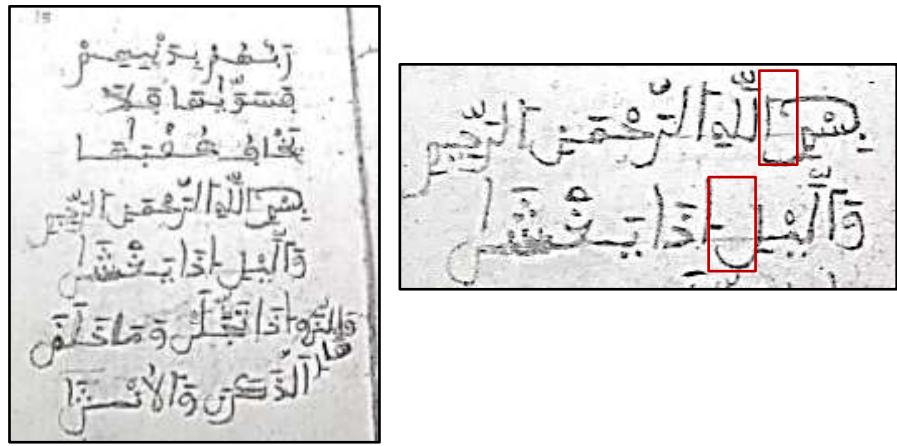 15
رَبُّهُمْ بِذَنْبِهِمْ
فَسَوَّيٰهَا فَلَا
يَخَافُ عُقْبٰهَا
بِسْمِ اللَّهِ الرَّحْمَٰنِ الرَّحِيمِ
وَالَّيْلِ إِذَا يَغْشَى
إِذَا تَجَلَّى وَمَا خَلَقَ
الذَّكَرَ وَالْأُنْثَى
بِسْمِ اللَّهِ الرَّحْمَٰنِ الرَّحِيمِ
وَالَّيْلِ إِذَا يَغْشَى